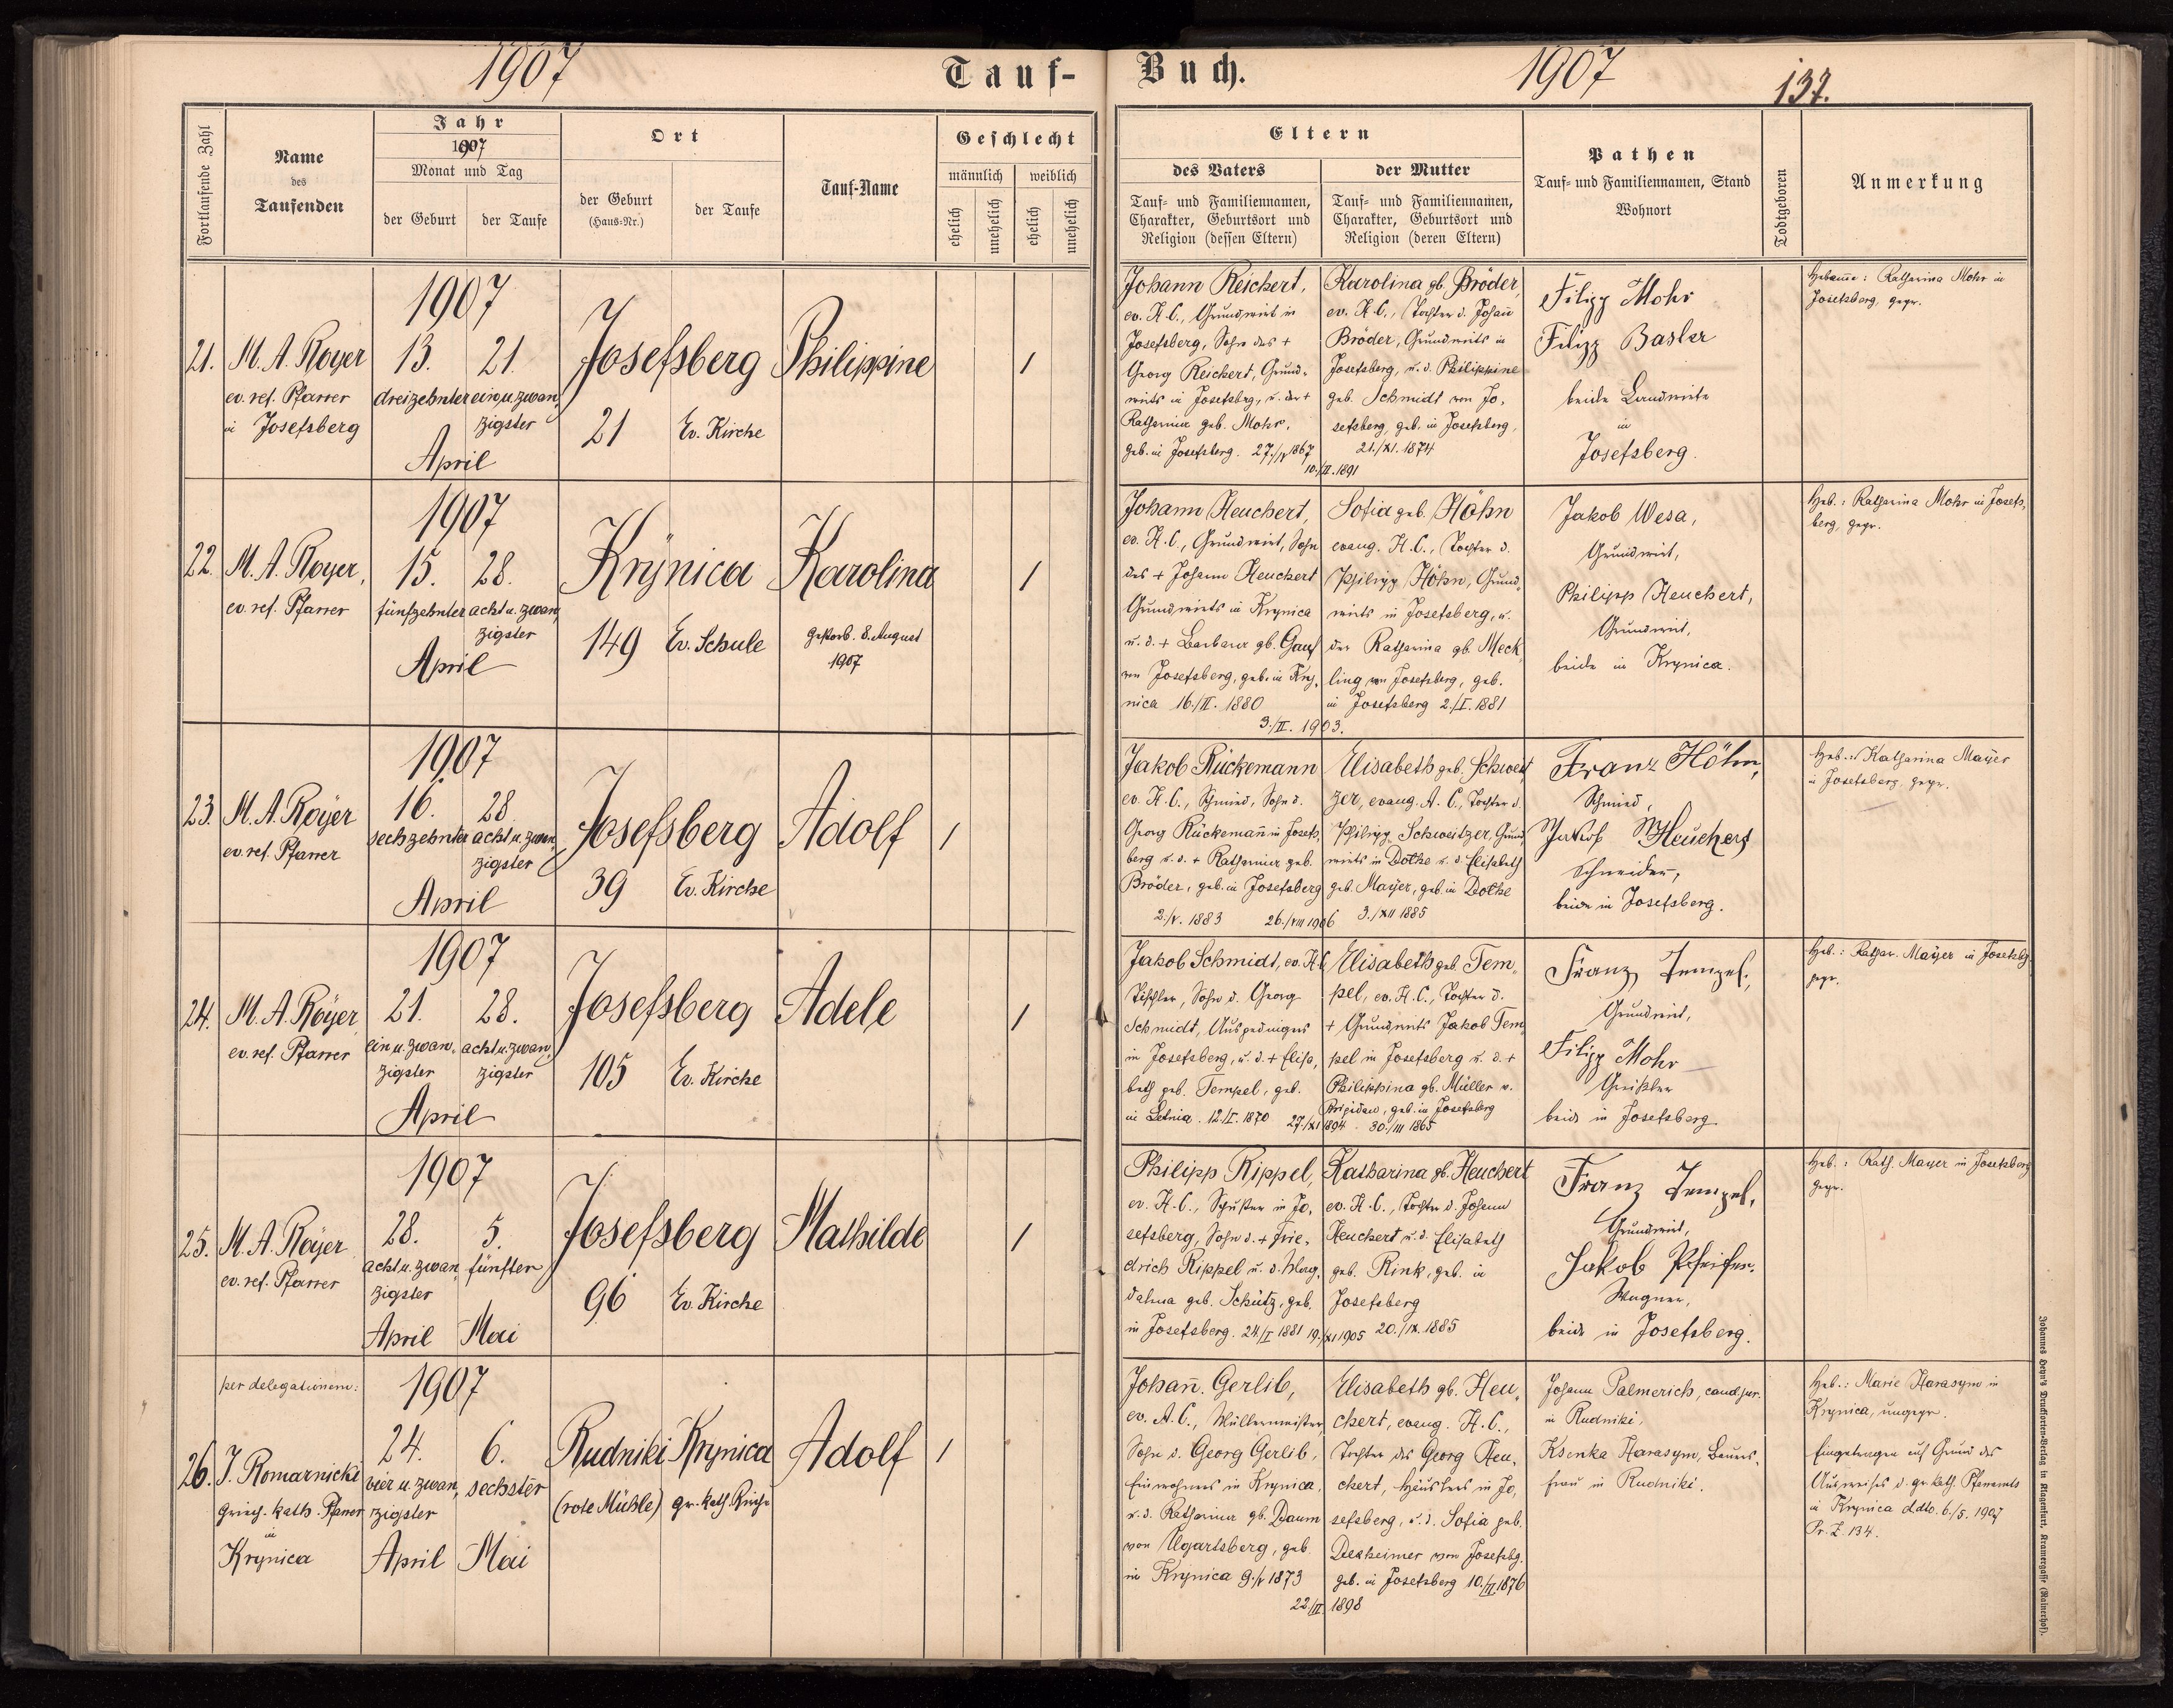 1907
Tauf-
Buch.
1907
137.
Fortlaufende Zahl
Name
des
Taufenden
Jahr
1907
Monat und Tag
der Geburt
der Taufe
Ort
der Geburt
(Haus-Nr.)
der Taufe
Tauf-Name
Geschlecht
männlich
weiblich
ehelich
unehelich
ehelich
unehelich
Eltern
des Vaters
Tauf- und Familiennamen,
Charakter, Geburtsort und
Religion (dessen Eltern)
der Mutter
Tauf- und Familiennamen,
Charakter, Geburtsort und
Religion (deren Eltern)
Pathen
Tauf- und Familiennamen, Stand
Wohnort
Todtgeboren
Anmerkung
21.
M. A. Royer
ev. ref. Pfarrer
in Josefsberg
1907
13.
dreizehnter
21.
ein u. zwan,
zigster
April
Josefsberg
21
Ev. Kirche
Philippine
1
Johann Reichert,
ev. H. C., Grundwirt in
Josefsberg, Sohn des +
Georg Reichert, Grund,
wirts in Josefsbg, u. der +
Katharina geb. Mohr,
geb. in Josefsberg. 27./IV 1867
10./II. 1891
Karolina gb. Bröder,
ev. H. C., Tochter d. Johañ
Bröder, Grundwirts in
Josefsberg, u. d. Philippine
geb. Schmidt von Jo,
sefsberg, geb. in Josefsberg,
21./XI. 1874
Filipp Mohr
Filipp Basler
beide Landwirte
in
Josefsberg.
Hebam̄e: Katharina Mohr in
Josefsberg, gepr.
22.
M. A. Royer,
ev. ref. Pfarrer
1907
15.
fünfzehnter
28.
acht u. zwan,
zigster
April
Krynica
149
Ev. Schule
Karolina
Gestorb. 8. August
1907
1
Johann Heuchert,
ev. H. C., Grundwirt, Sohn
des + Johann Heuchert
Grundwirts in Krynica
u. d. + Barbara gb. Gauf
von Josefsberg, geb. in Kry,
nica 16./II. 1880
3./II. 1903.
Sofia geb. Höhn
evang. H. C., Tochter d.
Philipp Höhn, Grund,
wirts in Josefsberg, u.
der Katharina gb. Meck,
ling von Josefsberg, geb.
in Josefsberg 2./I. 1881
Jakob Wesa,
Grundwirt,
Philipp Heuchert,
Grundwirt,
beide in Krynica.
Heb.: Katharina Mohr in Josefs,
berg, gepr.
23.
M. A. Royer
ev. ref. Pfarrer
1907
16.
sechzehnter
28.
acht u. zwan,
zigster
April
Josefsberg
39
Ev. Kirche
Adolf
1
Jakob Rückemann
ev. H. C., Schmied, Sohn d.
Georg Rückemañ in Josefs,
berg u. d. + Katharina geb.
Bröder, geb. in Josefsberg
2./V. 1883 26./VIII 1906
Elisabeth geb. Schweit
zer, evang. A. C., Tochter d.
Philipp Schweitzer, Grund,
wirts in Dolhe u. d. Elisabeth
geb. Mayer, geb. in Dolhe
3./XII 1885
Franz Höhn,
Schmied,
Jakob Heuchert
Schneider,
beide in Josefsberg.
Heb.: Katharina Mayer
in Josefsberg. gepr.
24.
M. A. Royer,
ev. ref. Pfarrer
1907
21.
ein u. zwan,
zigster
28.
acht u. zwan,
zigster
April
Josefsberg
105
Ev. Kirche
Adele
1
Jakob Schmidt, ev. H. C.
Tischler, Sohn d. Georg
Schmidt, Ausgedinges
in Josefsberg, u. d. + Elisa,
beth geb. Tempel, geb.
in Letnia. 12./I. 1870 27./XI 1894
Elisabeth geb. Tem,
pel, ev. H. C., Tochter d.
+ Grundwirts Jakob Tem
pel in Josefsberg u. d. +
Philippina gb. Müller v.
Brigidau, geb. in Josefsberg
30./III 1865
Franz Tempel,
Grundwirt,
Filipp Mohr
Greißler
beide in Josefsberg
Heb.: Kathar. Mayer in Josefsbg
gepr.
25.
M. A. Royer
ev. ref. Pfarrer
1907
28.
acht u. zwan,
zigster
April
5.
fünfter
Mai
Josefsberg
96
Ev. Kirche
Mathilde
1
Philipp Rippel,
ev. H. C., Schuster in Jo,
sefsberg, Sohn d. + Frie,
drich Rippel u. d. Mag,
dalena geb. Schütz, geb.
in Josefsberg. 24./I 1881 19./XI 1905
Katharina gb. Heuchert
ev. H. C., Tochter d. Johann
Heuchert u. d. Elisabeth
geb. Rink, geb. in
Josefsberg
20./IX. 1885
Franz Tempel,
Grundwirt,
Jakob Pfeifer.
Wagner,
beide in Josefsberg.
Heb.: Kath. Mayer in Josefsberg
gepr.
26.
per delegationem:
J. Romarnicki
griech. kath. Pfarrer
in
Krynica
1907
24.
vier u. zwan,
zigster
April
6.
sechster
Mai
Rudniki
(rote Mühle)
Krynica
gr. kath. Kirche
Adolf
1
Johañ. Gerlib,
ev. A. C., Müllermeister,
Sohn d. Georg Gerlib,
Einwohners in Krynica,
u. d. Katharina gb. Daum
von Ugartsberg, geb.
in Krynica 9./V 1873
22./II. 1898
Elisabeth gb. Heu,
chert, evang. H. C.,
Tochter des Georg Heu,
chert, Häuslers in Jo,
sefsberg, u. d. Sofia geb.
Desheimer von Josefsbg.
geb. in Josefsberg 10./II 1876
Johann Palmerich, cand. jur.
in Rudniki,
Ksenka Harasym, Bauers,
frau in Rudniki.
Heb.: Marie Harasym in
Krynica, ungepr.
Eingetragen auf Grund des
Ausweises d. gr. kath. Pfarramts
in Krynica ddto. 6./5. 1907
Pr. Z. 134.
Johannes Heyn's Drucksorten-Verlag in Klagenfurt, Kramergasse (Rainerhof).